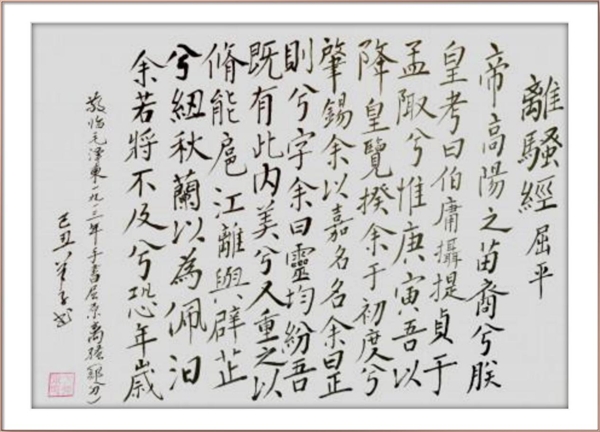 離騷經 屈平
帝高陽之苗裔兮朕
皇考曰伯庸攝提貞于
孟陬兮惟庚寅吾以
降皇覽揆余于初度兮
肇錫余以嘉名名余曰正
則兮字余曰靈均紛吾
既有此内美兮又重之以
脩能扈江離與辟芷
兮紐秋蘭以為佩汩
余若將不及兮恐年歲
敬临毛泽東一九一三年手書屈原离骚(部分)
己丑